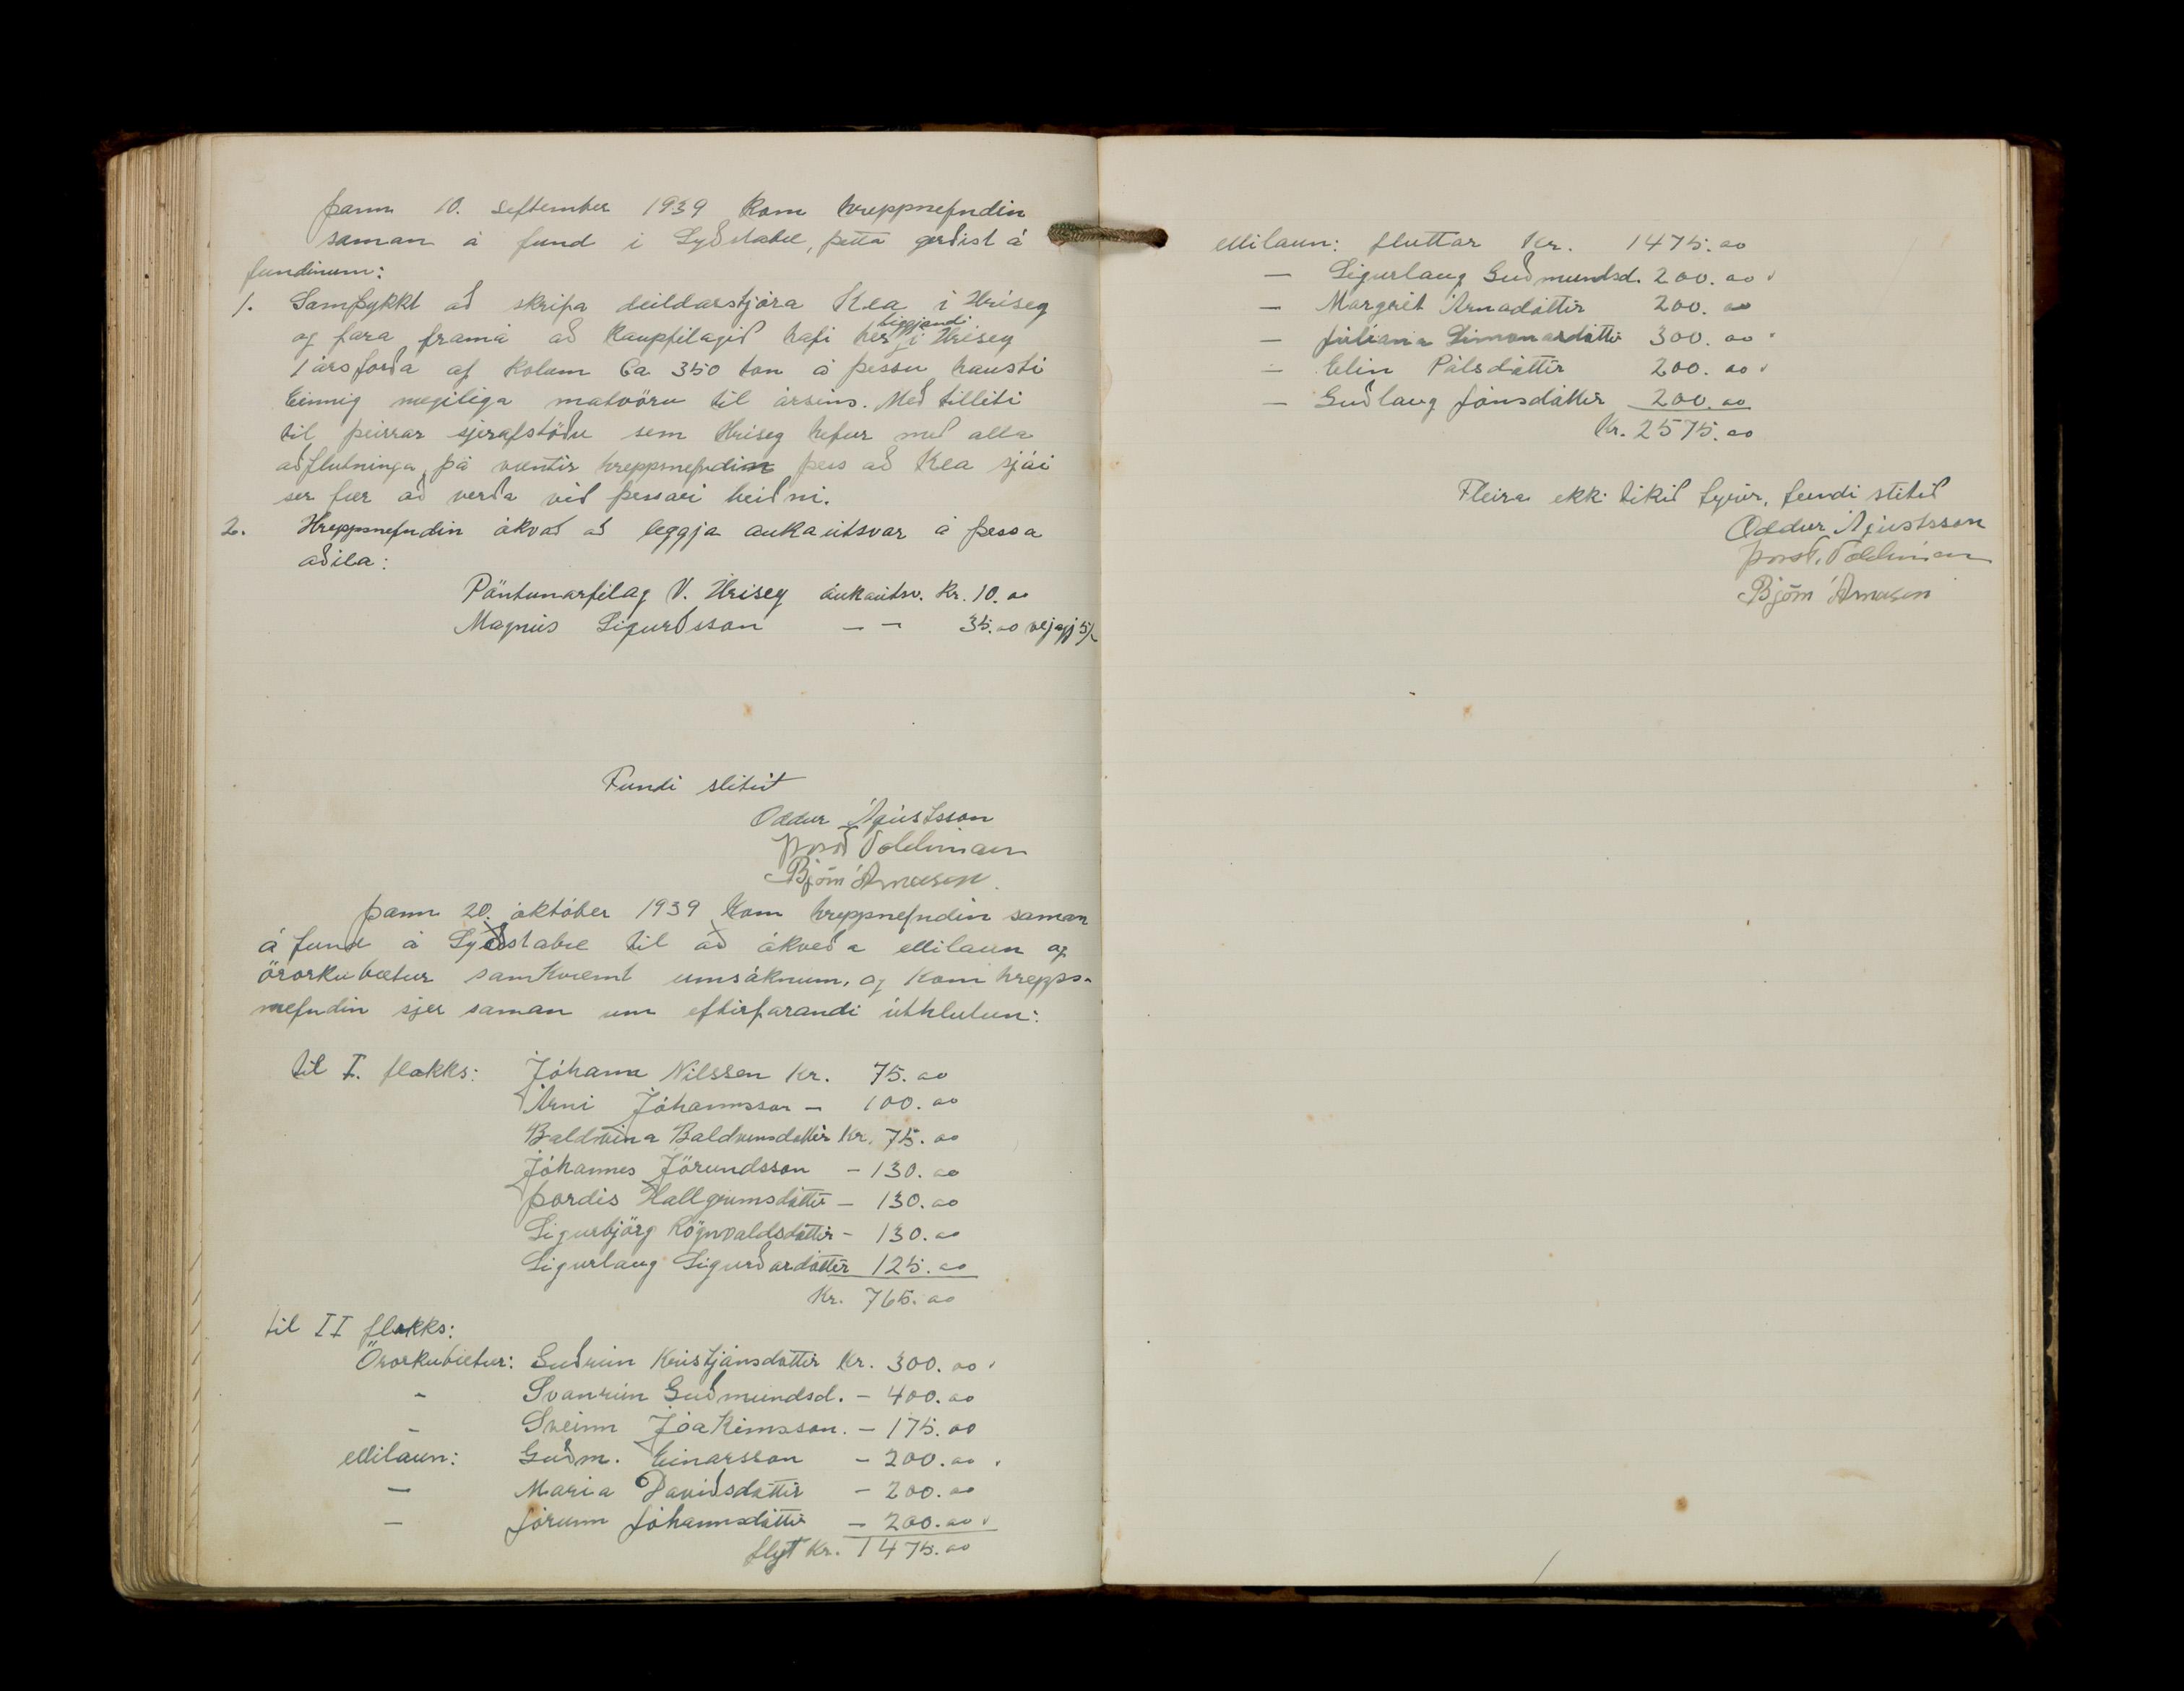 Þann 10. september 1939 kom hreppnefndin
saman á fund i Syðstabæ, þetta gerðist á
fundinum:
1. Samþykkt að skrifa deildarstjóra Kea i Hrisey
og fara framá að kaupfilagið hafi her liggjandi i Hrisey
1 árs forða af kolum Ca 350 ton á þessu hausti
Einnig nægiliga matvöru til ársins. Með tilliti
til þeirrar sjerafstöðu sem Hrisey hefur með alla
aðflutninga, þá væntir hreppsnefndin þess að Kea sjái
ser fær að verða við þessari beiðni.
2. Hreppsnefndin ákvað að leggja aukaútsvar á þessa
aðila:
Pöntunarfilag V. Hrisey aukaútsv. Kr. 10.00
Magnús Sigurðsson — — 35.00
Fundi slitið
Oddur Ágústsson
Þorst. Valdimars
Björn Árnason
Þann 20. október 1939 kom hreppnefndin saman
á fund á Syðstabæ til að ákveða ellilaun og
örorkubætur samkvæmt umsóknum, og kom hrepps-
nefndin sjer saman um eftirfarandi úthlutun:
til I. flokks: Jóhanna Nilssen Kr. 75.00
Árni Jóhannsson — 100.00
Baldvina Baldvinsdottir Kr. 75.00
Jóhannes Jörundsson — 130.00
Þordis Hallgrimsdóttir — 130.00
Sigurbjörg Rögnvaldsdóttir — 130.00
Sigurlaug Sigurðardóttir 125.00
Kr. 765.00
til II flokks:
Örorkubætur: Guðrún Kristjánsdottir Kr. 300.00
- Svanrún Guðmundsd. — 400.00
- Sveinn Jóakimsson. — 175.00
ellilaun: Guðm. Einarsson — 200.00
— Maria Daviðsdóttir — 200.00
— Jórunn Jóhannsdóttir — 200.00
flyt Kr. 1475.00
ellilaun: fluttar Kr. 1475.00
— Sigurlaug Guðmundsd. 200.00
— Margrét Árnadóttir 200.00
— Júliana Simonardóttir 300.00
— Elin Pálsdóttir 200.00
— Guðlaug Jónsdóttir 200.00
Kr. 2575.00
Fleira ekki tikið fyrir, fundi slitið
Oddur Ágústsson
Þorst. Valdimars
Björn Árnason